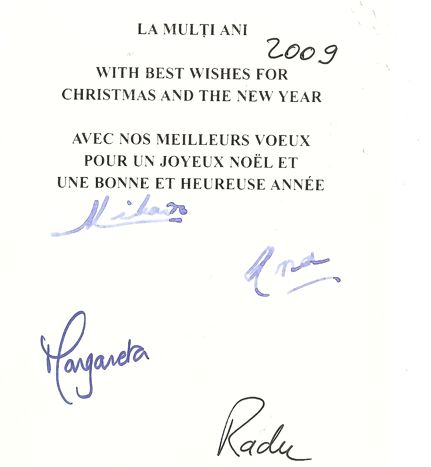 LA MULȚI ANI
2009
WITH BEST WISHES FOR
CHRISTMAS AND THE NEW YEAR
AVEC NOS MEILLEURS VOEUX
POUR UN JOYEUX NOËL ET
UNE BONNE ET HEUREUSE ANNÉE
Mihai R
Ana
Margareta
Radu